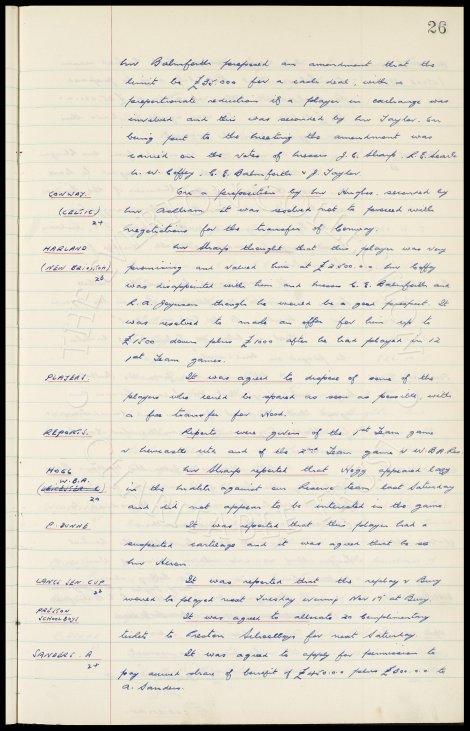 26
Mr Balmforth proposed an amendment that the
limit be £35,000 for a cash deal, with a
proportionate reduction if a player in exchange was
involved and this was seconded by Mr Taylor. On
being put to the meeting the amendment was
carried on the votes of Messrs J. E. Sharp,
Coffey, C. E. Balmforth & J. Taylor
CONWAY. On a proposition by Mr Hughes, seconded by
(CELTIC) Mr it was resolved not to proceed with
2+ negotiations for the transfer of Conway.
HARLAND Mr Sharp thought that this player was very
(NEW BRIGHTON) promising and valued him at £2500.00 Mr Coffey
was disappointed with him and Messrs C. E. Balmforth and
R. A. Joynson thought he would be a good prospect. It
was resolved to make an offer for him up to
£1500 down plus £1000 after he had played in 12
1st Team games.
PLAYERS. It was agreed to dispose of some of the
players who could be spared as soon as possible, with
a free transfer for Hood.
REPORTS. Reports were given of the 1st Team game
v Newcastle Utd and of the 2nd Team game v W.B.A. Res
HOGG Mr Sharp reported that Hogg appeared lazy
W.B.A.
(LEICESTER C) in the match against our Reserve team last Saturday
and did not appear to be interested in the game.
P. DUNNE It was reported that this player had a
suspected cartilage and it was agreed that he see
Mr
LANCS SEN CUP It was reported that the replay v Bury
would be played next Tuesday evening Nov 15 at Bury
PRESTON It was agreed to allocate 20 complimentary
SCHOOLBOYS tickets to Preston Schoolboys for next Saturday.
SANDERS. A It was agreed to apply for permission to
2+ pay accrued share of benefit of £450.0.0 plus £300.0.0 to
A. Sanders.